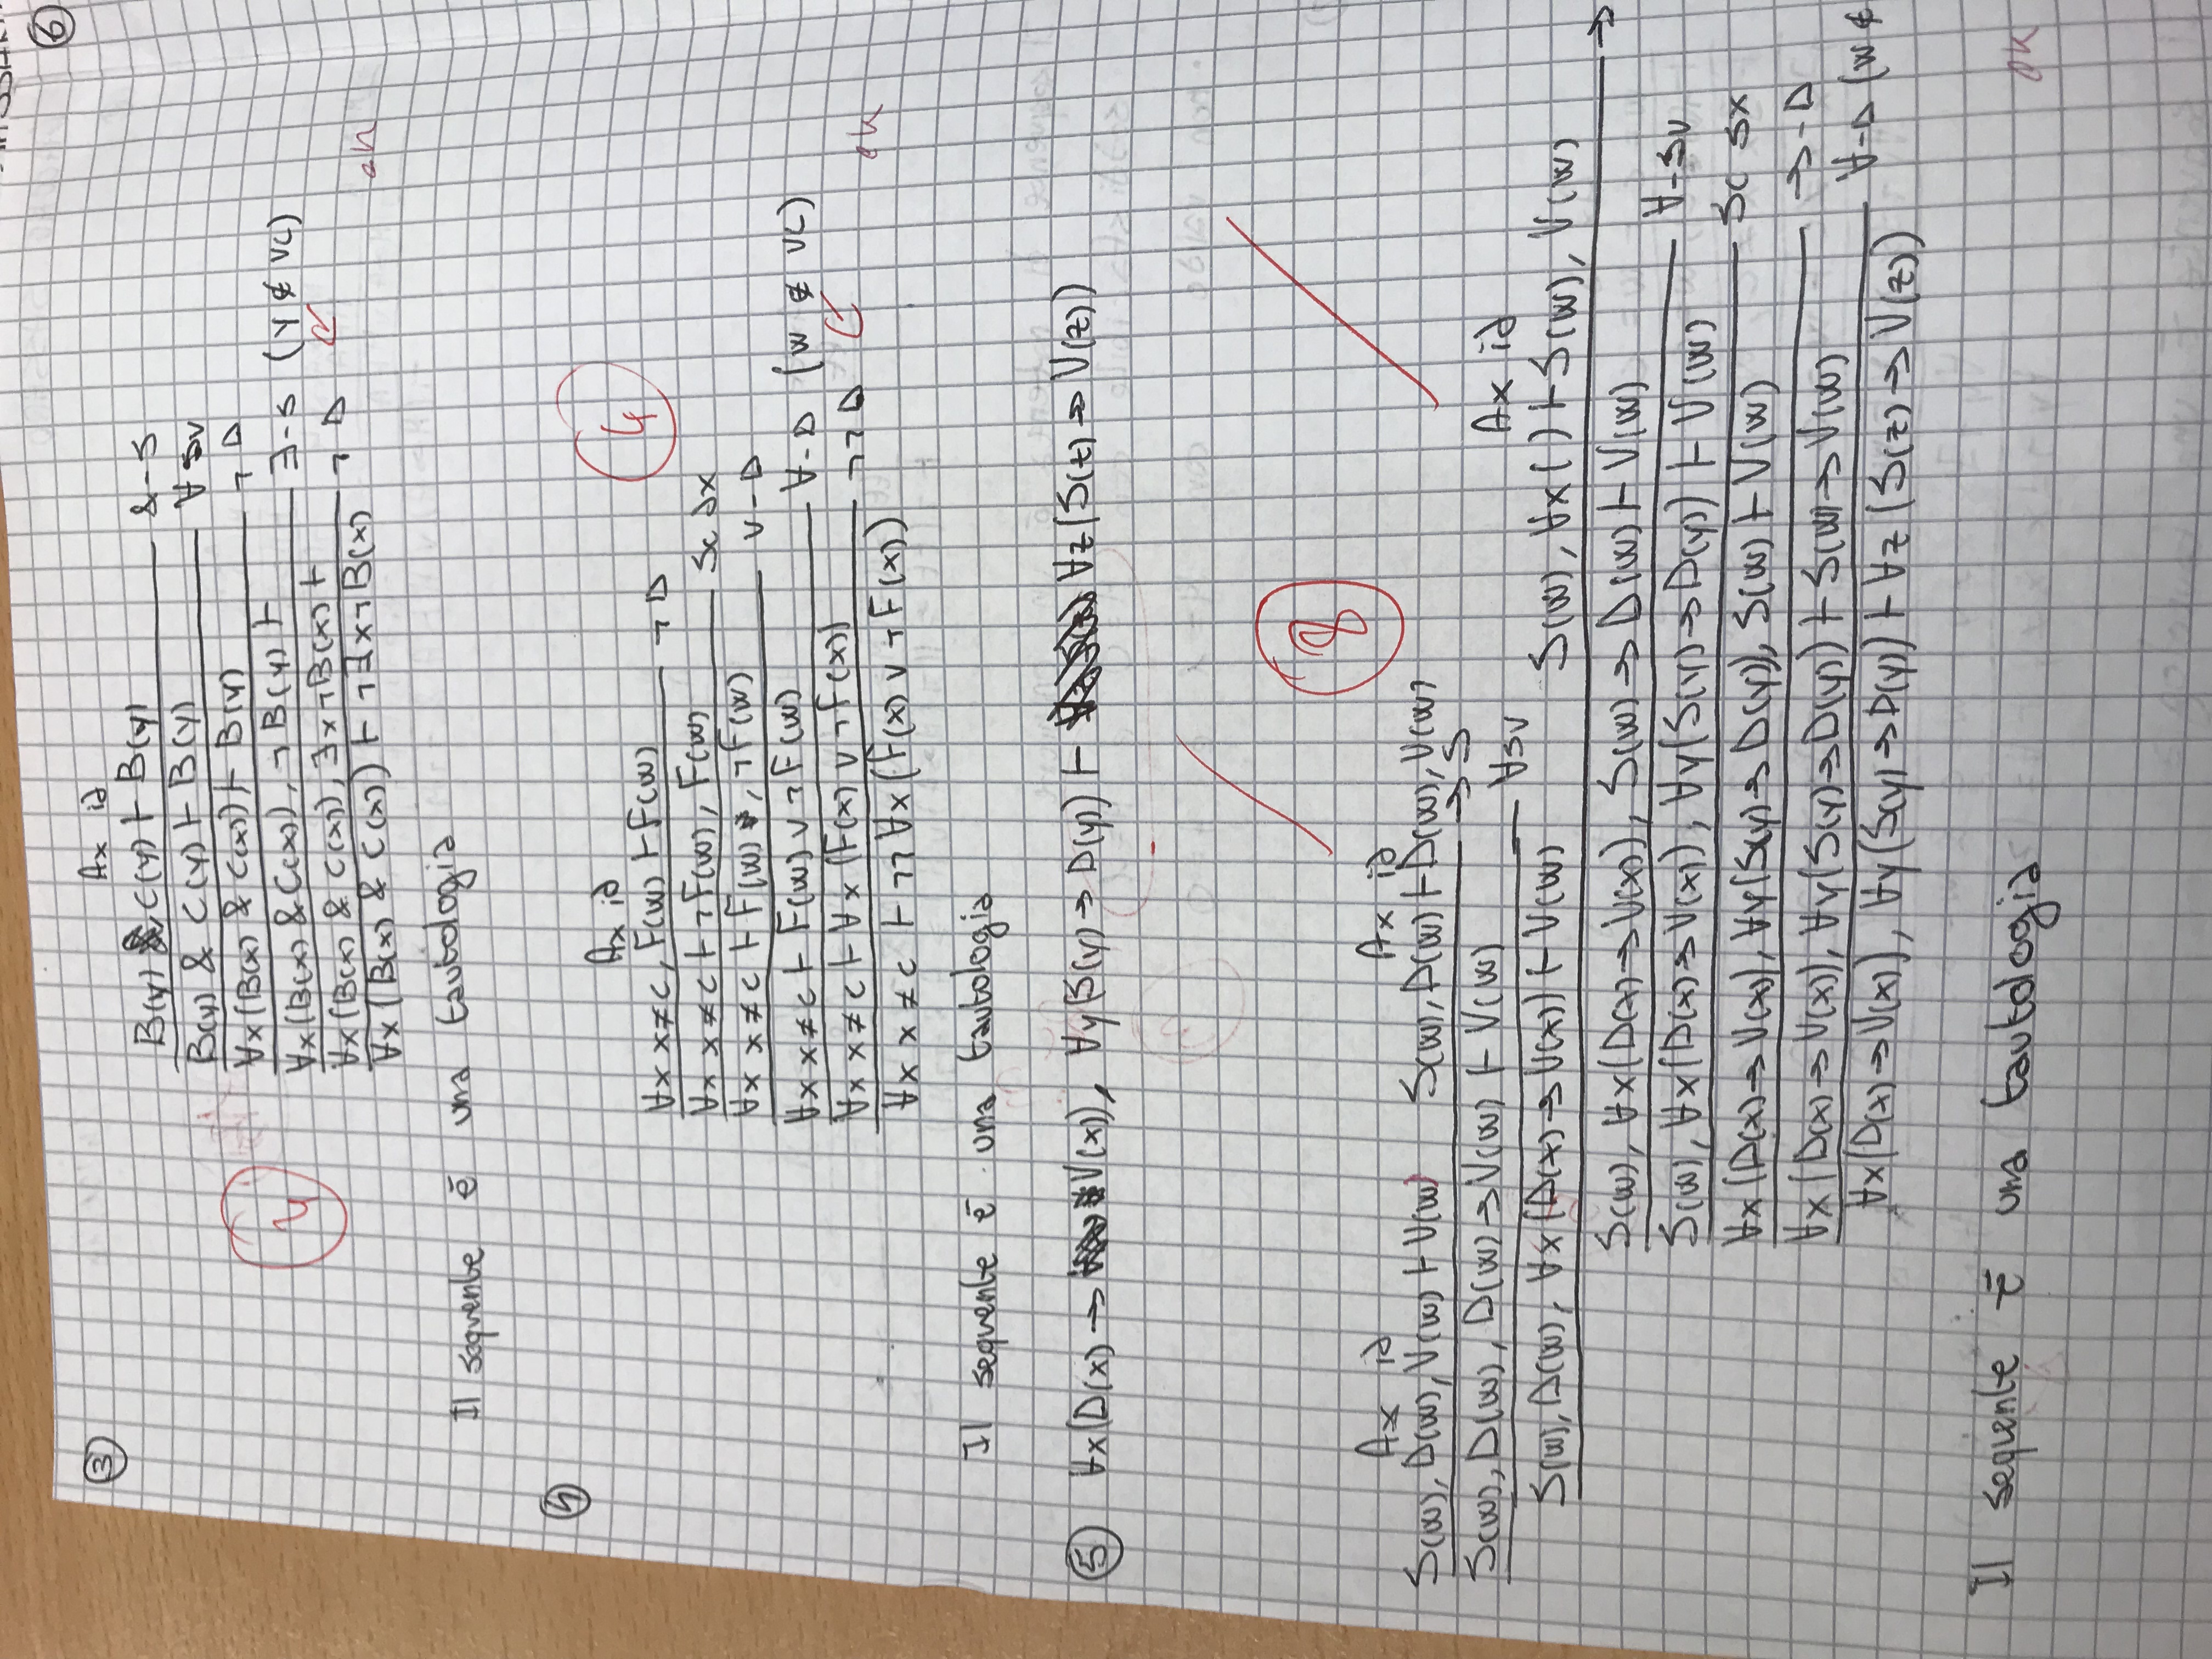 ③
Ax id
B(y), C(y) ⊢ B(y)
&-S
B(y) & C(y) ⊢ B(y)
∀ sv
∀x(B(x) & C(x)) ⊢ B(y)
¬ D
∀x(B(x) & C(x)), ¬B(y) ⊢
∃-S (y ∉ VL)
∀x(B(x) & C(x)), ∃x¬B(x) ⊢
¬ D
∀x(B(x) & C(x)) ⊢ ¬∃x¬B(x)
4
ok
Il sequente è una tautologia
④
Ax id
4
∀x x≠c, F(w) ⊢ F(w)
¬ D
∀x x≠c ⊢ ¬F(w), F(w)
Sc dx
∀x x≠c ⊢ F(w), ¬F(w)
∨-D
∀x x≠c ⊢ F(w) ∨ ¬F(w)
∀-D (w ∉ VL)
∀x x≠c ⊢ ∀x (F(x) ∨ ¬F(x))
¬¬D
∀x x≠c ⊢ ¬¬∀x(F(x) ∨ ¬F(x))
ok
Il sequente è una tautologia
⑤ ∀x(D(x) → V(x)), ∀y(S(y) → D(y)) ⊢ ∀z(S(z) → V(z))
8
Ax id Ax id
S(w), D(w), V(w) ⊢ V(w) S(w), D(w) ⊢ D(w), V(w)
→ S
S(w), D(w), D(w) → V(w) ⊢ V(w)
∀sv
Ax id
S(w), D(w), ∀x(D(x) → V(x)) ⊢ V(w) S(w), ∀x( ) ⊢ S(w), V(w)
→
S(w), ∀x(D(x) → V(x)), S(w) → D(w) ⊢ V(w)
∀-sv
S(w), ∀x(D(x) → V(x)), ∀y(S(y) → D(y)) ⊢ V(w)
Sc sx
∀x(D(x) → V(x)), ∀y(S(y) → D(y)), S(w) ⊢ V(w)
→-D
∀x(D(x) → V(x)), ∀y(S(y) → D(y)) ⊢ S(w) → V(w)
∀-D (w ∉
∀x(D(x) → V(x)), ∀y(S(y) → D(y)) ⊢ ∀z (S(z) → V(z))
Il sequente è una tautologia
ok
⑥